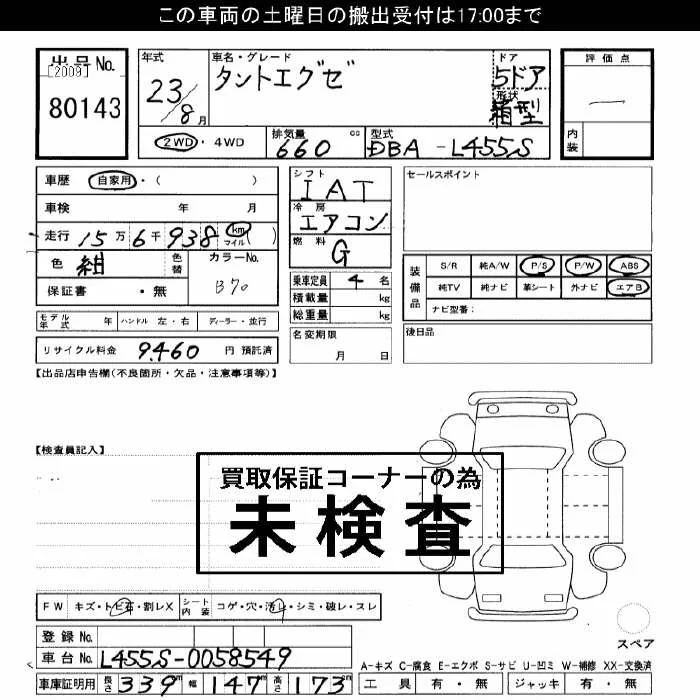 この車両の土曜日の搬出受付は17:00まで
出品No.
[2009]
80143
年式 23/8月
車名・グレード
タントエグゼ
ドア 5ドア
形状 箱型
評価点
―
内装
2WD・4WD
排気量 660 cc
型式 DBA-L455S
車歴 自家用・( )
車検 年 月
走行 15万6千938 km マイル ( )
色 紺 色替 カラーNo. B70
保証書 ・ 無
シフト IAT
冷房 エアコン
燃料 G
乗車定員 4 名
積載量 kg
総重量 kg
セールスポイント
装備品 S/R 純A/W P/S P/W ABS
純TV 純ナビ 革シート 外ナビ エアB
ナビ型番:
モデル年式 年 ハンドル 左・右 ディーラー・並行
名変期限 月 日
後日品
リサイクル料金 9,460 円 預託済
【出品店申告欄(不良箇所・欠品・注意事項等)】
【検査員記入】
買取保証コーナーの為
未検査
FW キズ・トビ石・割レX シート内装 コゲ・穴・汚レ・シミ・破レ・スレ
登録No.
車台No. L455S-0058549
スペア
A-キズ C-腐食 E-エクボ S-サビ U-凹ミ W-補修 XX-交換済
車庫証明用 長さ 339m 幅 147m 高さ 173cm
工具 有・無 ジャッキ 有・無